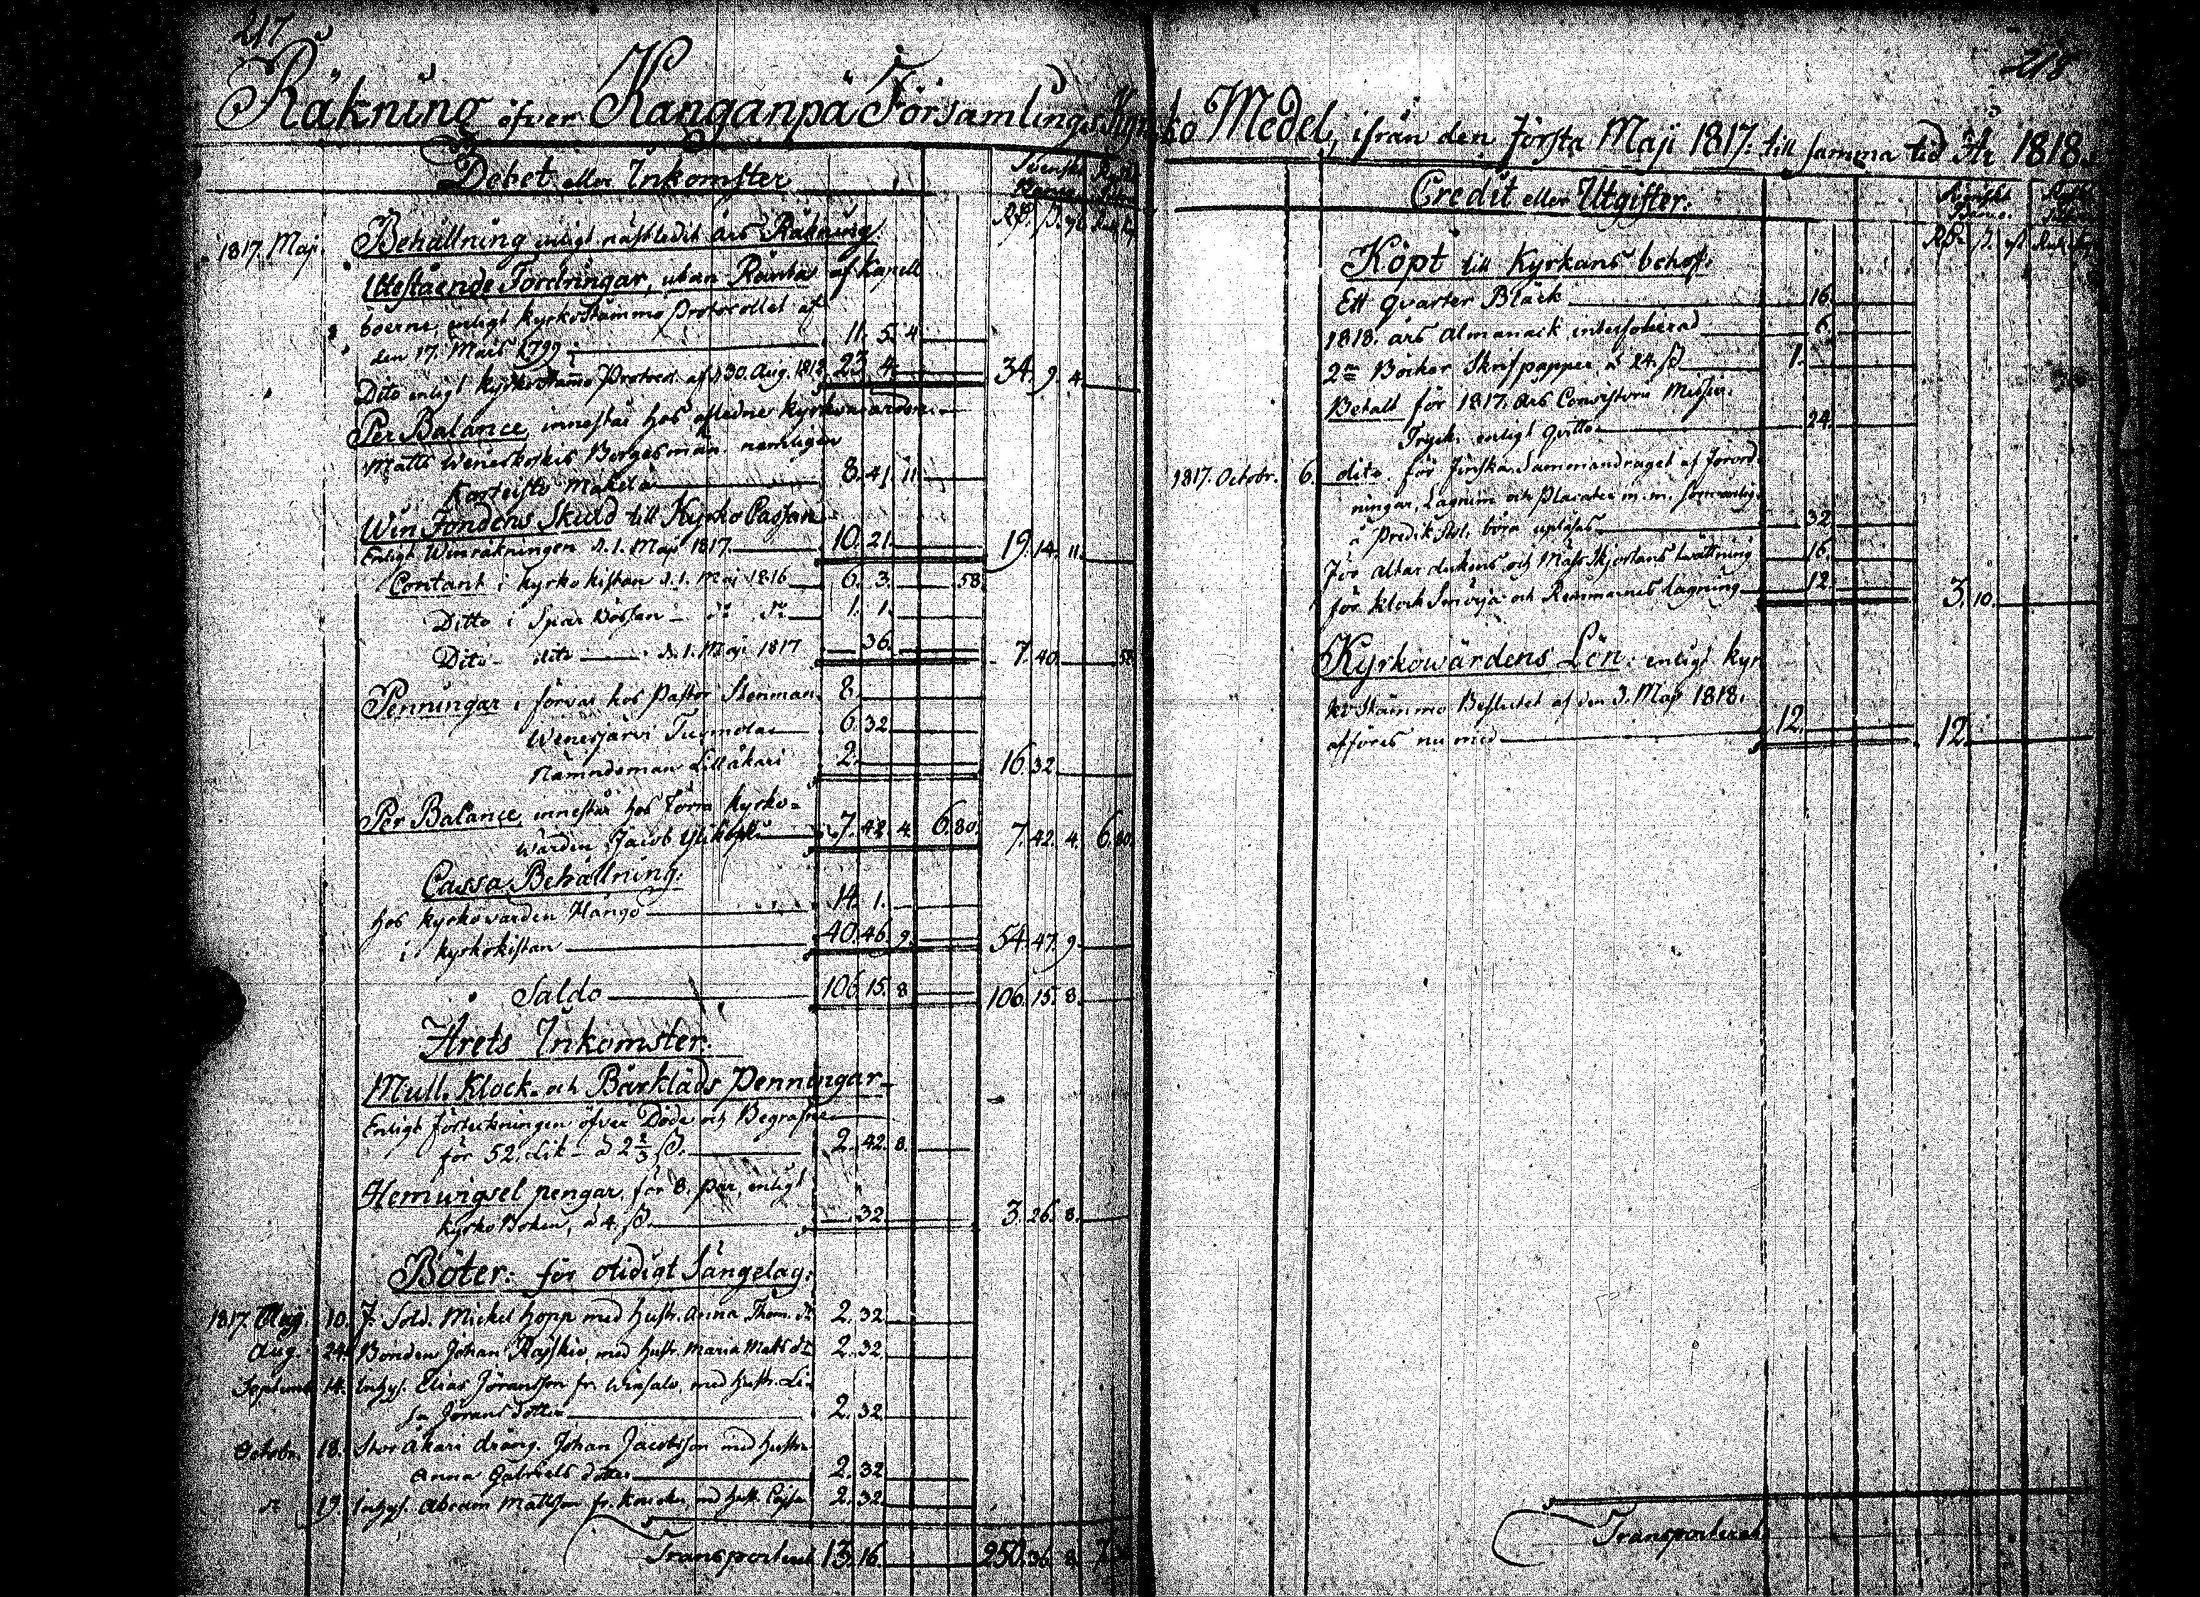 217
218
Räkning öfver Kanganpä Församlings Kyrko Medel, ifrån den första Maji 1817. till samma tid År 1818.
Debet eller Inkomster
Svenskt Banco
Rd. ß. rst.
1817. Maj. Behållning enligt nästledit års Räkning.
Utestående Fordringar, utan Ränta af Kapell
boerne, enligt kyrkostämmo Protocollet af
den 17. Maij 1799 11. 5. 4
Dito enligt kyrkostämmo Protocol. af d. 30. Aug. 1813 23. 4. 34. 9. 4.
Per Balance innestår hos afledne kyrkovärden
Matts Weneskoskis Borgesmän nemligen
Mäkelä 8. 41. 11.
Win Fondens Skuld till Kyrko Cassan
Enligt Winräkningen d. 1. Maji 1817. 10. 21. 19. 14. 11.
Contant i kyrkokistan d. 1. Maj 1816 6. 3. 58.
Ditto i Spar Bössan d:o d:o 1. 1.
Dito dito d. 1. Maji 1817 36. 7. 40. 58.
Penningar i förvar hos Pastor Stenman 8.
Wenesjärvi Tuomolas 6. 32
Nämndeman Lillåkari 2. 16. 32
Per Balance innestår hos Förra kyrko-
wärden Jacob 7. 42. 4. 6. 80. 7. 42. 4. 6. 80.
Cassa Behållning.
hos kyrkowärden Hango 14. 1.
i kyrkokistan 40. 46. 9. 54. 47. 9.
Saldo 106. 15. 8 106. 15. 8.
Årets Inkomster.
Mull. Klock. och Bårkläds Penningar
Enligt förteckningen öfver Döde och Begrafne
för 52. Lik à 2 2/3 ß. 2. 42. 8.
Hemvigsel pengar, för 8. par, enligt
kyrko Boken, à 4. ß. 32. 3. 26. 8.
Böter. för otidigt Sängelag.
1817. 10. F. Sold. Mickel Hopp med hustr. Anna Thom. dr 2. 32
Aug. 24. Bonden Johan med hustr. Maria Matts dr 2. 32
Septemb. 14. Inhys. Elias Jöransson fr. med hustr. Li-
sa Jörans dotter 2. 32
Octobr. 18. Storåkari dräng. Johan Jacobsson med hustru
Anna Gabriels dotter 2. 32
d:o 19. Inhys. Abram Mattsson fr. med hust. Cajsa 2. 32
Transporterat 13. 16. 250. 36. 8. 7.
Credit eller Utgifter.
Köpt till Kyrkans behof.
Ett qvarter Bläck 16.
1818. års Almanack, interfolierad 6.
2ne Böcker Skrifpapper à 24. ß 1.
Betalt för 1817. års Consistorii Missiv.
Tryck. enligt qvitto 24.
1817. Octobr. 6. dito. för Finska Sammandraget af Förord-
ningar, Lagrum och Placater m. m. som
å Predik Stol. böra upläsas 32.
För Altar dukens och Mässkjortans twättning 16.
för klock Smörja och Remmarnes lagning 12. 3. 10.
Kyrkowärdens Lön: enligt kyr-
ko Stämmo Beslutet af den 3. Maji 1818.
afföres nu med 12. 12.
Transporterat